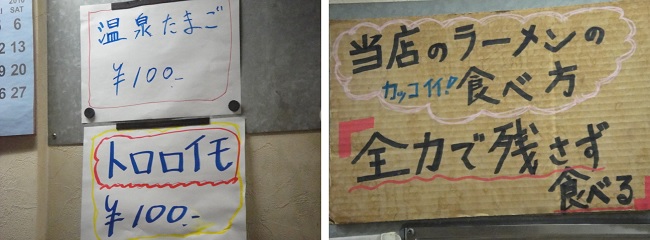 2010
SAT
5 6
12 13
19 20
26 27
温泉たまご
¥100.-
トロロイモ
¥100.-
当店のラーメンの
カッコイイ!食べ方
『全力で残さず
食べる』